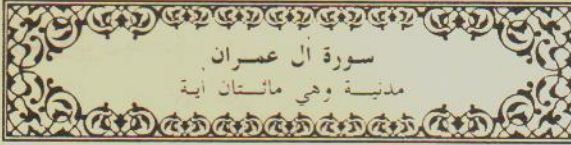 سورة آل عمران
مدنية وهي مائتان آية